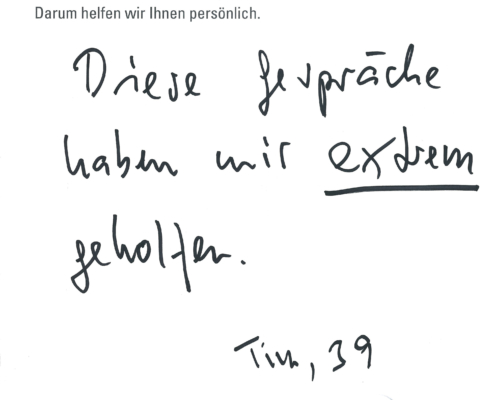 Darum helfen wir Ihnen persönlich.
Diese Gespräche
haben mir extrem
geholfen.
Tim, 39